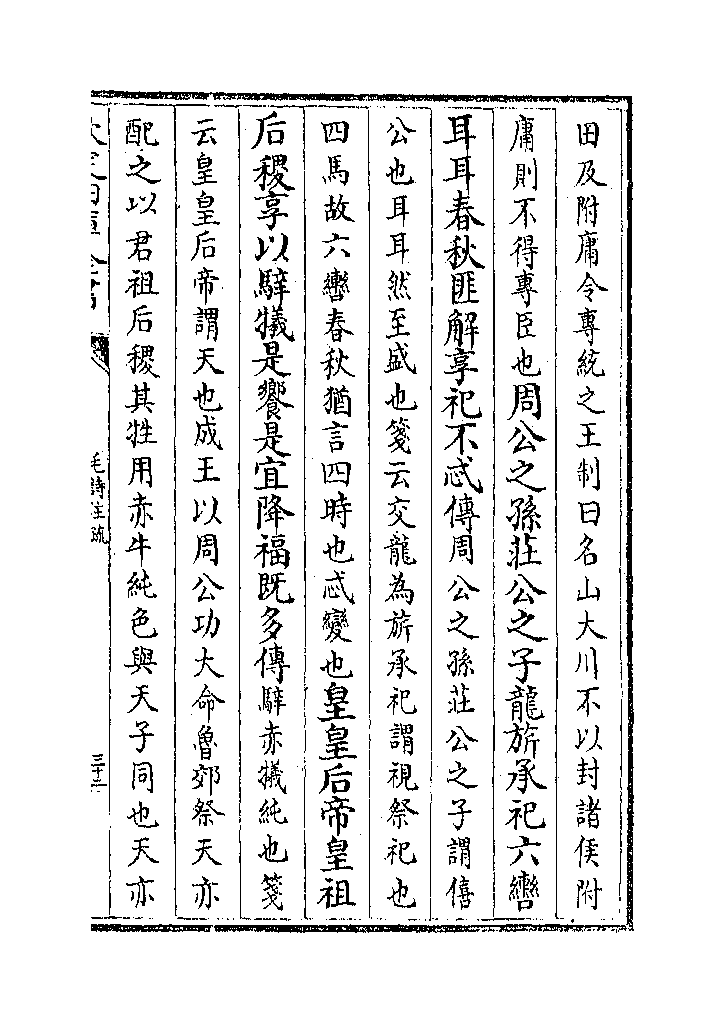 田及附庸令專統之王制曰名山大川不以封諸侯附
庸則不得專臣也周公之孫莊公之子龍旂承祀六轡
耳耳春秋匪解享祀不忒傳周公之孫莊公之子謂僖
公也耳耳然至盛也箋云交龍為旂承祀謂視祭祀也
四馬故六轡春秋猶言四時也忒變也皇皇后帝皇祖
后稷享以騂犧是饗是宜降福既多傳騂赤犧純也箋
云皇皇后帝謂天也成王以周公功大命魯郊祭天亦
配之以君祖后稷其牲用赤牛純色與天子同也天亦
毛詩注疏
三十二